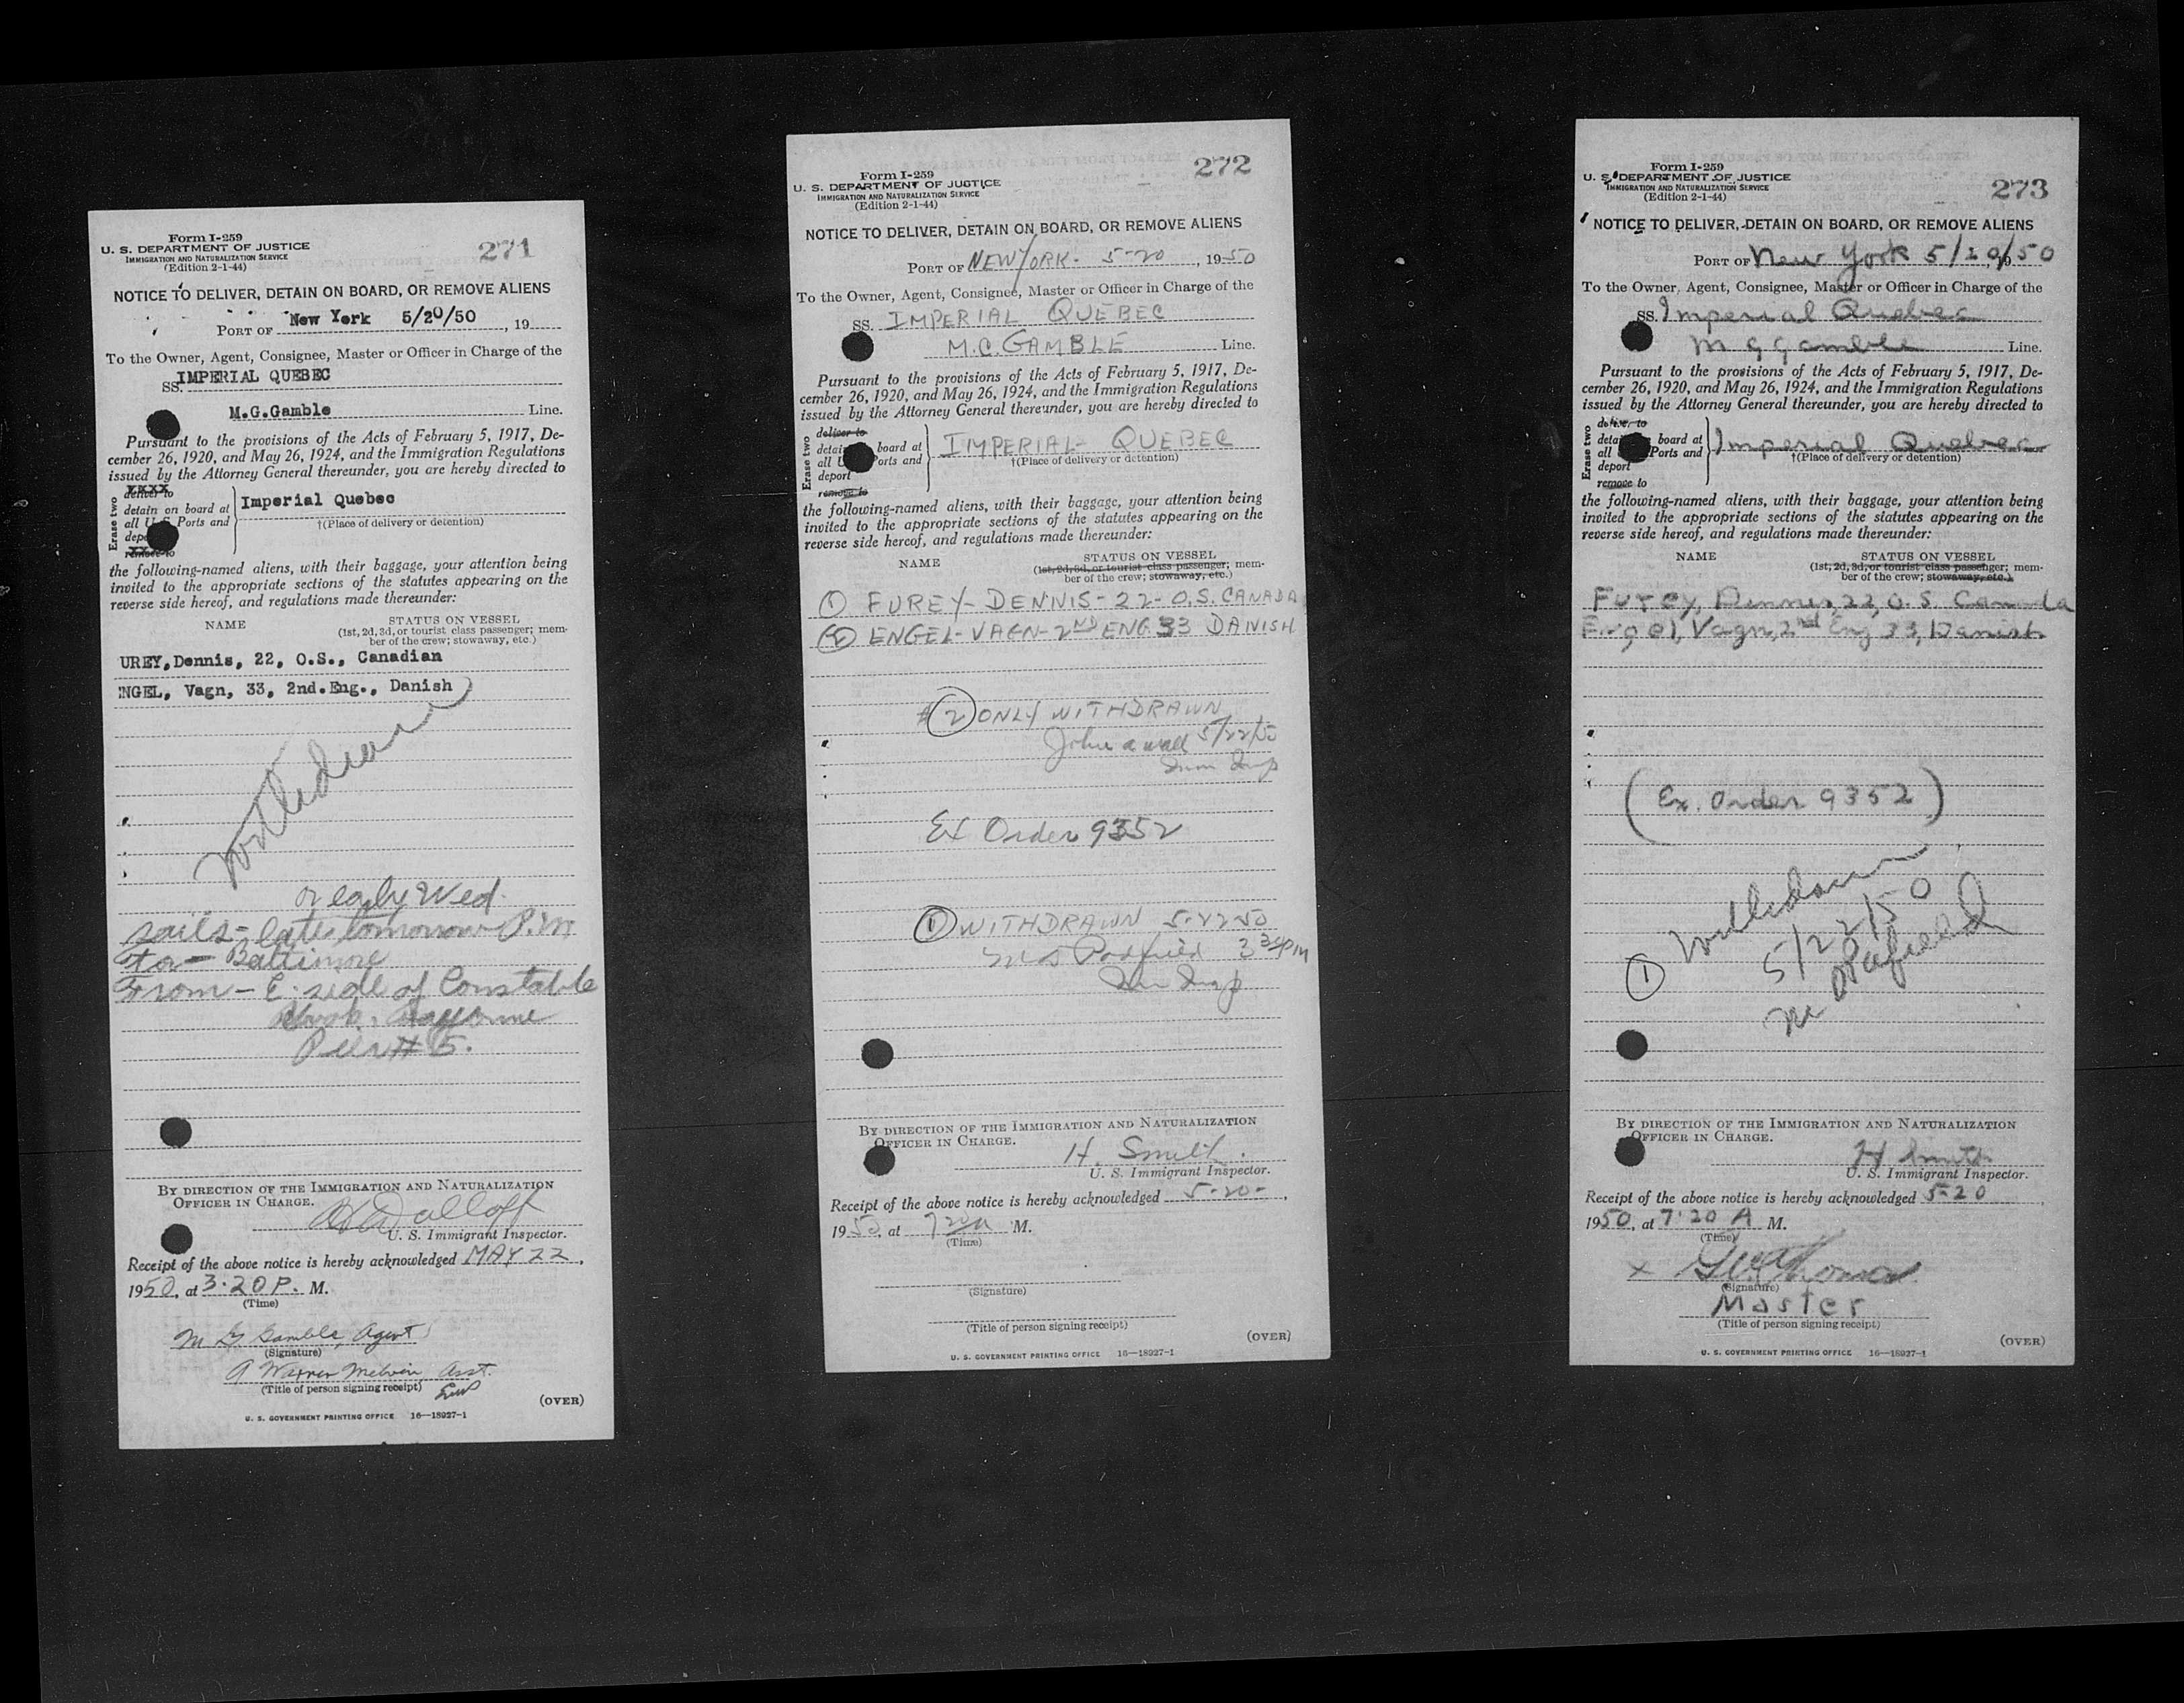 Form I-259
271
U. S. DEPARTMENT OF JUSTICE
IMMIGRATION AND NATURALIZATION SERVICE
(Edition 2-1-44)
NOTICE TO DELIVER, DETAIN ON BOARD, OR REMOVE ALIENS
PORT OF New York 5/20/50, 19
To the Owner, Agent, Consignee, Master or Officer in Charge of the
SS. IMPERIAL QUEBEC
M.G.Gamble Line.
Pursuant to the provisions of the Acts of February 5, 1917, De-
cember 26, 1920, and May 26, 1924, and the Immigration Regulations
issued by the Attorney General thereunder, you are hereby directed to
Erase two
deliver to
detain on board at
all U.S. Ports and
depo
remove to
Imperial Quebec
†(Place of delivery or detention)
the following-named aliens, with their baggage, your attention being
invited to the appropriate sections of the statutes appearing on the
reverse side hereof, and regulations made thereunder:
NAME STATUS ON VESSEL
(1st, 2d, 3d, or tourist class passenger; mem-
ber of the crew; stowaway, etc.)
UREY,Dennis, 22, O.S., Canadian
NGEL, Vagn, 33, 2nd.Eng., Danish
Withdrawn
or early Wed.
sails - late tomorrow P.M
to - Baltimore
From - E. side of Constable
Hook, Bayonne
Pier # 5.
BY DIRECTION OF THE IMMIGRATION AND NATURALIZATION
OFFICER IN CHARGE.
U. S. Immigrant Inspector.
Receipt of the above notice is hereby acknowledged MAY 22,
1950, at 3:20 P. M.
(Time)
M G Gamble, Agent
(Signature)
A Warren Melvin Asst.
(Title of person signing receipt)
(OVER)
U. S. GOVERNMENT PRINTING OFFICE 16—18927-1
Form I-259
272
U. S. DEPARTMENT OF JUSTICE
IMMIGRATION AND NATURALIZATION SERVICE
(Edition 2-1-44)
NOTICE TO DELIVER, DETAIN ON BOARD, OR REMOVE ALIENS
PORT OF NEW YORK. 5-20, 1950
To the Owner, Agent, Consignee, Master or Officer in Charge of the
SS. IMPERIAL QUEBEC
M.C. GAMBLE Line.
Pursuant to the provisions of the Acts of February 5, 1917, De-
cember 26, 1920, and May 26, 1924, and the Immigration Regulations
issued by the Attorney General thereunder, you are hereby directed to
Erase two
deliver to
detain board at
all U Ports and
deport
remove to
IMPERIAL - QUEBEC
†(Place of delivery or detention)
the following-named aliens, with their baggage, your attention being
invited to the appropriate sections of the statutes appearing on the
reverse side hereof, and regulations made thereunder:
NAME STATUS ON VESSEL
(1st, 2d, 3d, or tourist class passenger; mem-
ber of the crew; stowaway, etc.)
① FUREY - DENNIS - 22 - O.S. CANADA
② ENGEL - VAGN - 2ND ENG. 33 DANISH
# ② ONLY WITHDRAWN
John a wall 5/22/50
Imm Insp
Ex Order 9352
① WITHDRAWN 5-22-50
Padfield 3 30 pm
Imm Insp
BY DIRECTION OF THE IMMIGRATION AND NATURALIZATION
OFFICER IN CHARGE.
H. Smith.
U. S. Immigrant Inspector.
Receipt of the above notice is hereby acknowledged 5-20-,
1950, at 7 20 a M.
(Time)
(Signature)
(Title of person signing receipt)
(OVER)
U. S. GOVERNMENT PRINTING OFFICE 16—18927-1
Form I-259
273
U. S. DEPARTMENT OF JUSTICE
IMMIGRATION AND NATURALIZATION SERVICE
(Edition 2-1-44)
NOTICE TO DELIVER, DETAIN ON BOARD, OR REMOVE ALIENS
PORT OF New York 5/20/50
To the Owner, Agent, Consignee, Master or Officer in Charge of the
SS. Imperial Quebec
M G Gamble Line.
Pursuant to the provisions of the Acts of February 5, 1917, De-
cember 26, 1920, and May 26, 1924, and the Immigration Regulations
issued by the Attorney General thereunder, you are hereby directed to
Erase two
deliver to
detai board at
all Ports and
deport
remove to
Imperial Quebec
†(Place of delivery or detention)
the following-named aliens, with their baggage, your attention being
invited to the appropriate sections of the statutes appearing on the
reverse side hereof, and regulations made thereunder:
NAME STATUS ON VESSEL
(1st, 2d, 3d, or tourist class passenger; mem-
ber of the crew; stowaway, etc.)
Furey, Dennis, 22, O.S. Canada
Engel, Vagn, 2nd Eng 33, Danish
(Ex. Order 9352)
① Withdrawn
5/22/50
BY DIRECTION OF THE IMMIGRATION AND NATURALIZATION
OFFICER IN CHARGE.
H Smith
U. S. Immigrant Inspector.
Receipt of the above notice is hereby acknowledged 5-20,
1950, at 7:20 A M.
(Time)
x
(Signature)
Master
(Title of person signing receipt)
(OVER)
U. S. GOVERNMENT PRINTING OFFICE 16—18927-1